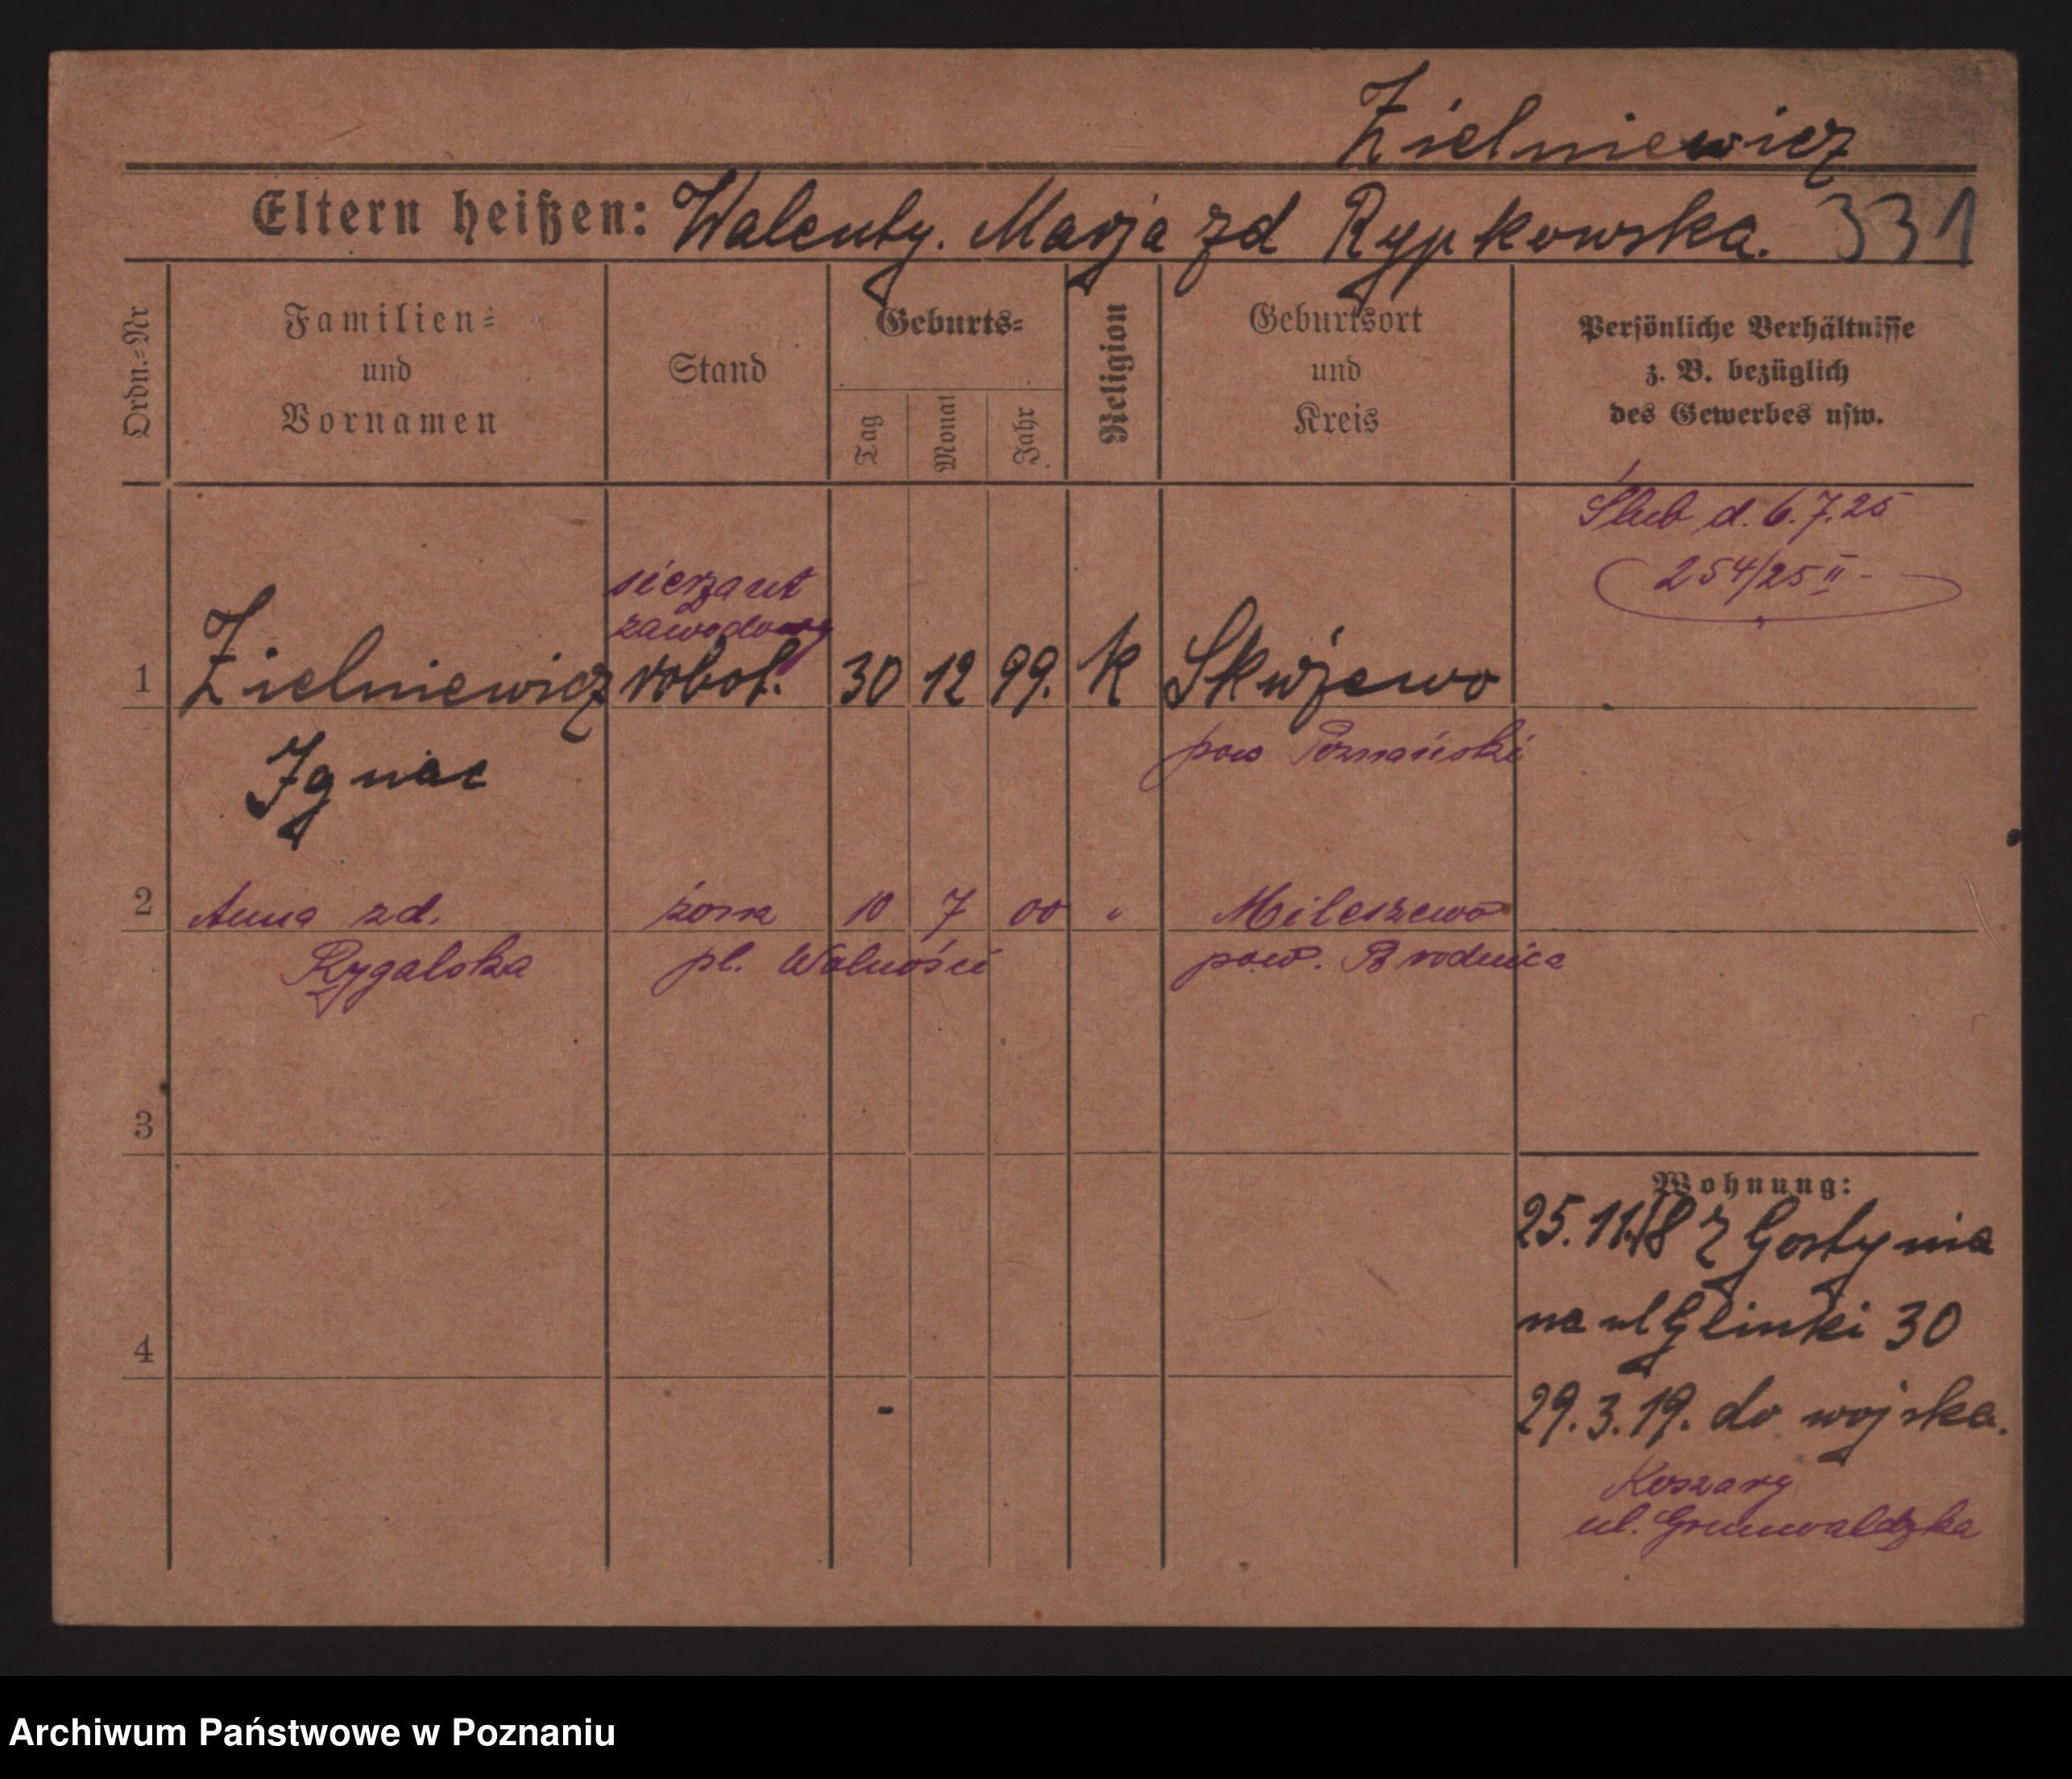 Zielniewicz
Eltern heißen: Walenty. Marja zd Rypkowska. 331
Ordn.=Nr
Familien=
und
Vornamen
Stand
Geburts=
Tag
Monat
Jahr
Religion
Geburtsort
und
Kreis
Persönliche Verhältnisse
z. B. bezüglich
des Gewerbes usw.
Ślub d. 6.7.25
254/25 II -
sierżant
zawodowy
1 Zielniewicz robot. 30 12 99. k
pow Poznański
Ignac
2 Anna zd. żona 10 7 00 " Mileszewo
Rygalska pl. Wolności pow. Brodnica
3
Wohnung:
25.11.18 z Gostynia
na ul Glinki 30
4
29.3.19. do wojska.
Koszary
ul. Grunwaldzka
Archiwum Państwowe w Poznaniu